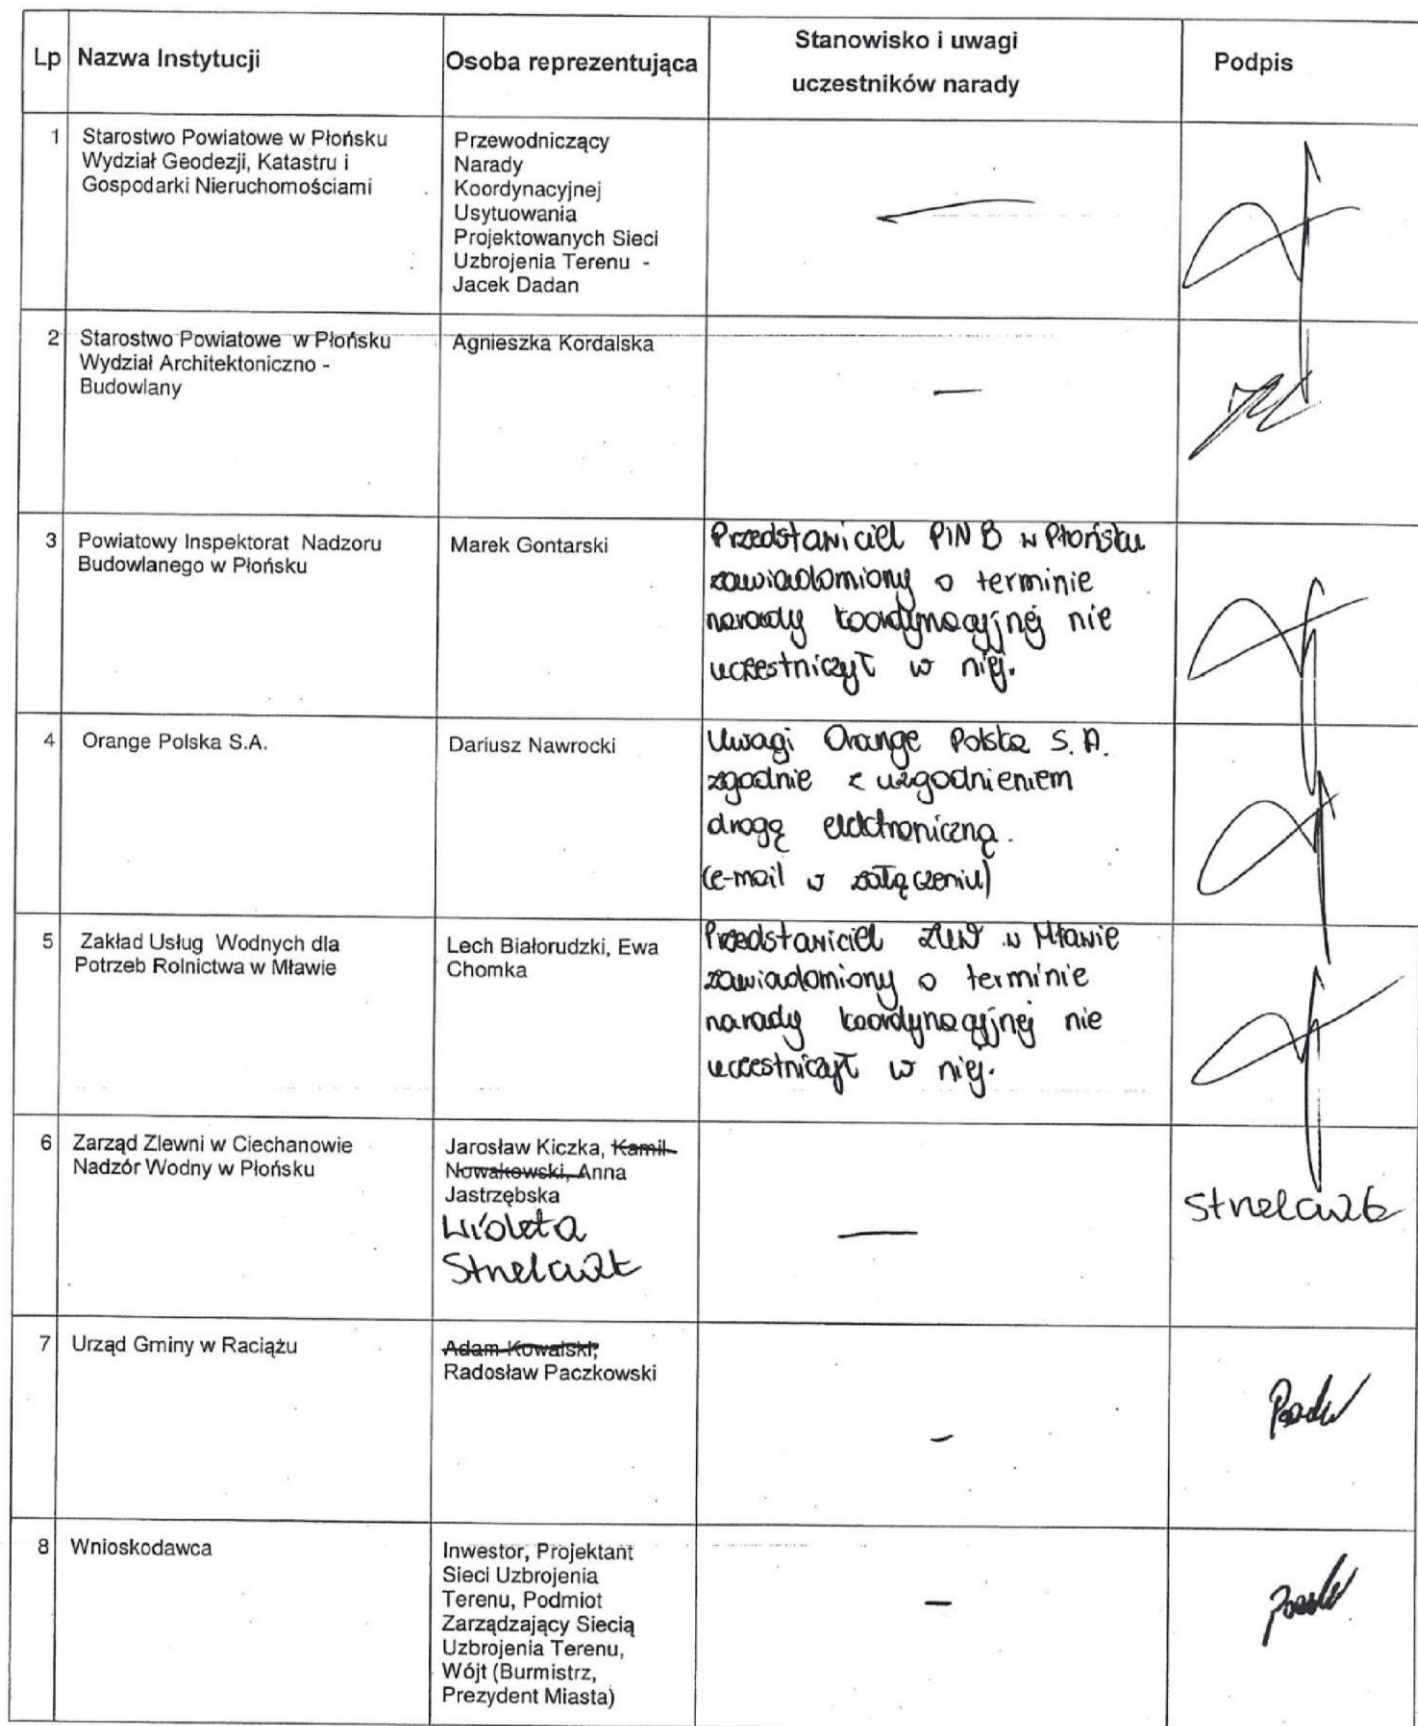 Lp Nazwa Instytucji Osoba reprezentująca Stanowisko i uwagi
uczestników narady Podpis
1 Starostwo Powiatowe w Płońsku
Wydział Geodezji, Katastru i
Gospodarki Nieruchomościami
Przewodniczący
Narady
Koordynacyjnej
Usytuowania
Projektowanych Sieci
Uzbrojenia Terenu -
Jacek Dadan
2 Starostwo Powiatowe w Płońsku
Wydział Architektoniczno -
Budowlany
Agnieszka Kordalska
—
3 Powiatowy Inspektorat Nadzoru
Budowlanego w Płońsku
Marek Gontarski
Przedstawiciel PINB w Płońsku
zawiadomiony o terminie
narady koordynacyjnej nie
uczestniczył w niej.
4 Orange Polska S.A.
Dariusz Nawrocki
Uwagi Orange Polska S.A.
zgodnie z uzgodnieniem
drogą elektroniczną.
(e-mail w załączeniu)
5 Zakład Usług Wodnych dla
Potrzeb Rolnictwa w Mławie
Lech Białorudzki, Ewa
Chomka
Przedstawiciel ZUW w Mławie
zawiadomiony o terminie
narady koordynacyjnej nie
uczestniczył w niej.
6 Zarząd Zlewni w Ciechanowie
Nadzór Wodny w Płońsku
Jarosław Kiczka, Kamil
Nowakowski, Anna
Jastrzębska
Wioleta
—
7 Urząd Gminy w Raciążu
Adam Kowalski,
Radosław Paczkowski
—
8 Wnioskodawca
Inwestor, Projektant
Sieci Uzbrojenia
Terenu, Podmiot
Zarządzający Siecią
Uzbrojenia Terenu,
Wójt (Burmistrz,
Prezydent Miasta)
—